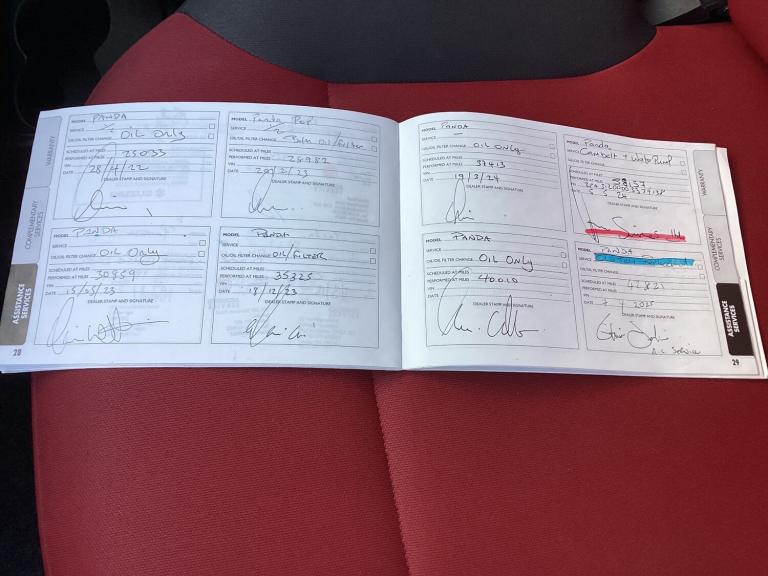 WARRANTY
COMPLEMENTARY SERVICES
ASSISTANCE SERVICES
MODEL PANDA
SERVICE
OIL/OIL FILTER CHANGE OIL ONLY
SCHEDULED AT MILES
PERFORMED AT MILES 25033
VIN
DATE 28/4/22
DEALER STAMP AND SIGNATURE
MODEL Panda POP
SERVICE
OIL/OIL FILTER CHANGE Oil/Filter
SCHEDULED AT MILES
PERFORMED AT MILES 28982
VIN
DATE
DEALER STAMP AND SIGNATURE
MODEL PANDA
SERVICE
OIL/OIL FILTER CHANGE OIL ONLY
SCHEDULED AT MILES
PERFORMED AT MILES 30859
VIN
DATE 15/05/23
DEALER STAMP AND SIGNATURE
MODEL PANDA
SERVICE
OIL/OIL FILTER CHANGE OIL/FILTER
SCHEDULED AT MILES
PERFORMED AT MILES 35325
VIN
DATE 18/12/23
DEALER STAMP AND SIGNATURE
28
MODEL PANDA
SERVICE
OIL/OIL FILTER CHANGE OIL ONLY
SCHEDULED AT MILES
PERFORMED AT MILES 37413
VIN
DATE 19/3/24
DEALER STAMP AND SIGNATURE
MODEL Panda
SERVICE Cambelt + Water Pump
OIL/OIL FILTER CHANGE
SCHEDULED AT MILES
PERFORMED AT MILES
VIN
DATE
DEALER STAMP AND SIGNATURE
MODEL PANDA
SERVICE
OIL/OIL FILTER CHANGE OIL ONLY
SCHEDULED AT MILES
PERFORMED AT MILES 40010
VIN
DATE
DEALER STAMP AND SIGNATURE
MODEL PANDA
SERVICE
OIL/OIL FILTER CHANGE
SCHEDULED AT MILES
PERFORMED AT MILES 42821
VIN
DATE 7 4 2025
DEALER STAMP AND SIGNATURE
A.C Service
WARRANTY
COMPLEMENTARY SERVICES
ASSISTANCE SERVICES
29